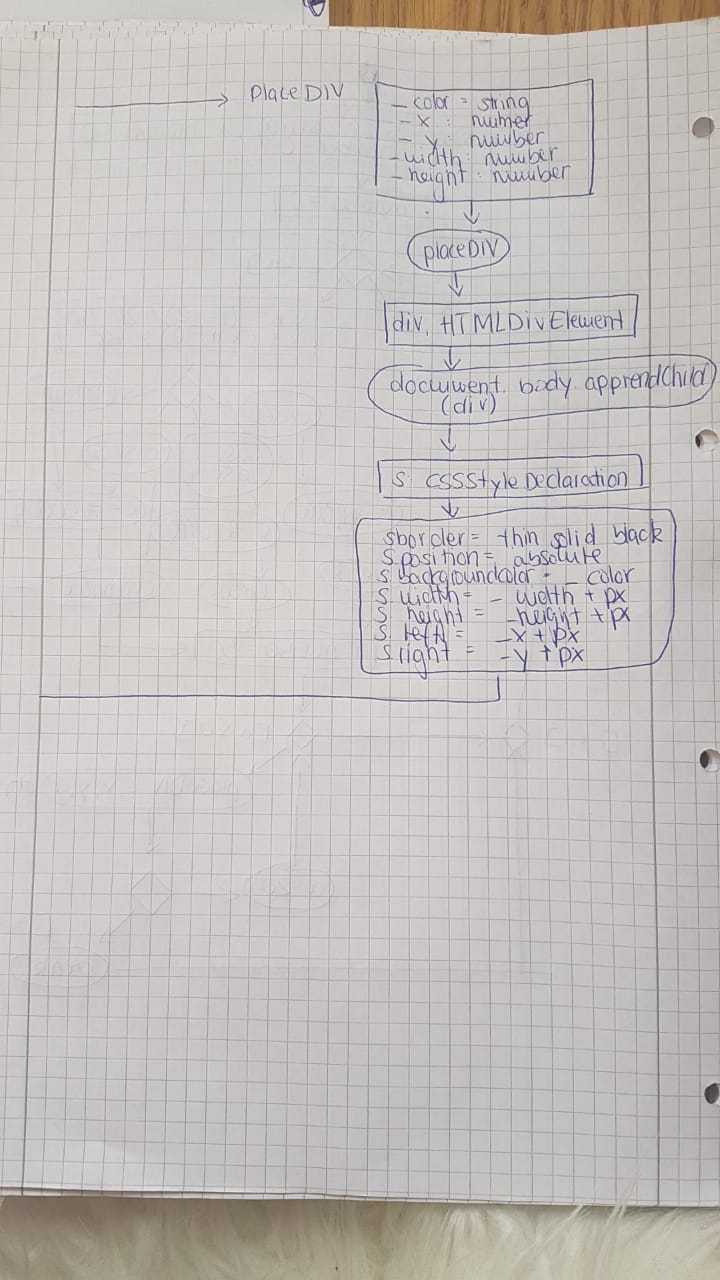 placeDIV
_ color = string
- x : numer
- y : number
- width : number
- height : number
placeDIV
div, HTMLDivElement
document. body. apprendChild
(div)
s CSSStyleDeclaration
sborder = thin solid black
s.position = absolute
s backgroundcolor = _ color
s. width = - width + px
s height = -height + px
s. left = -x + px
s. right = -y + px